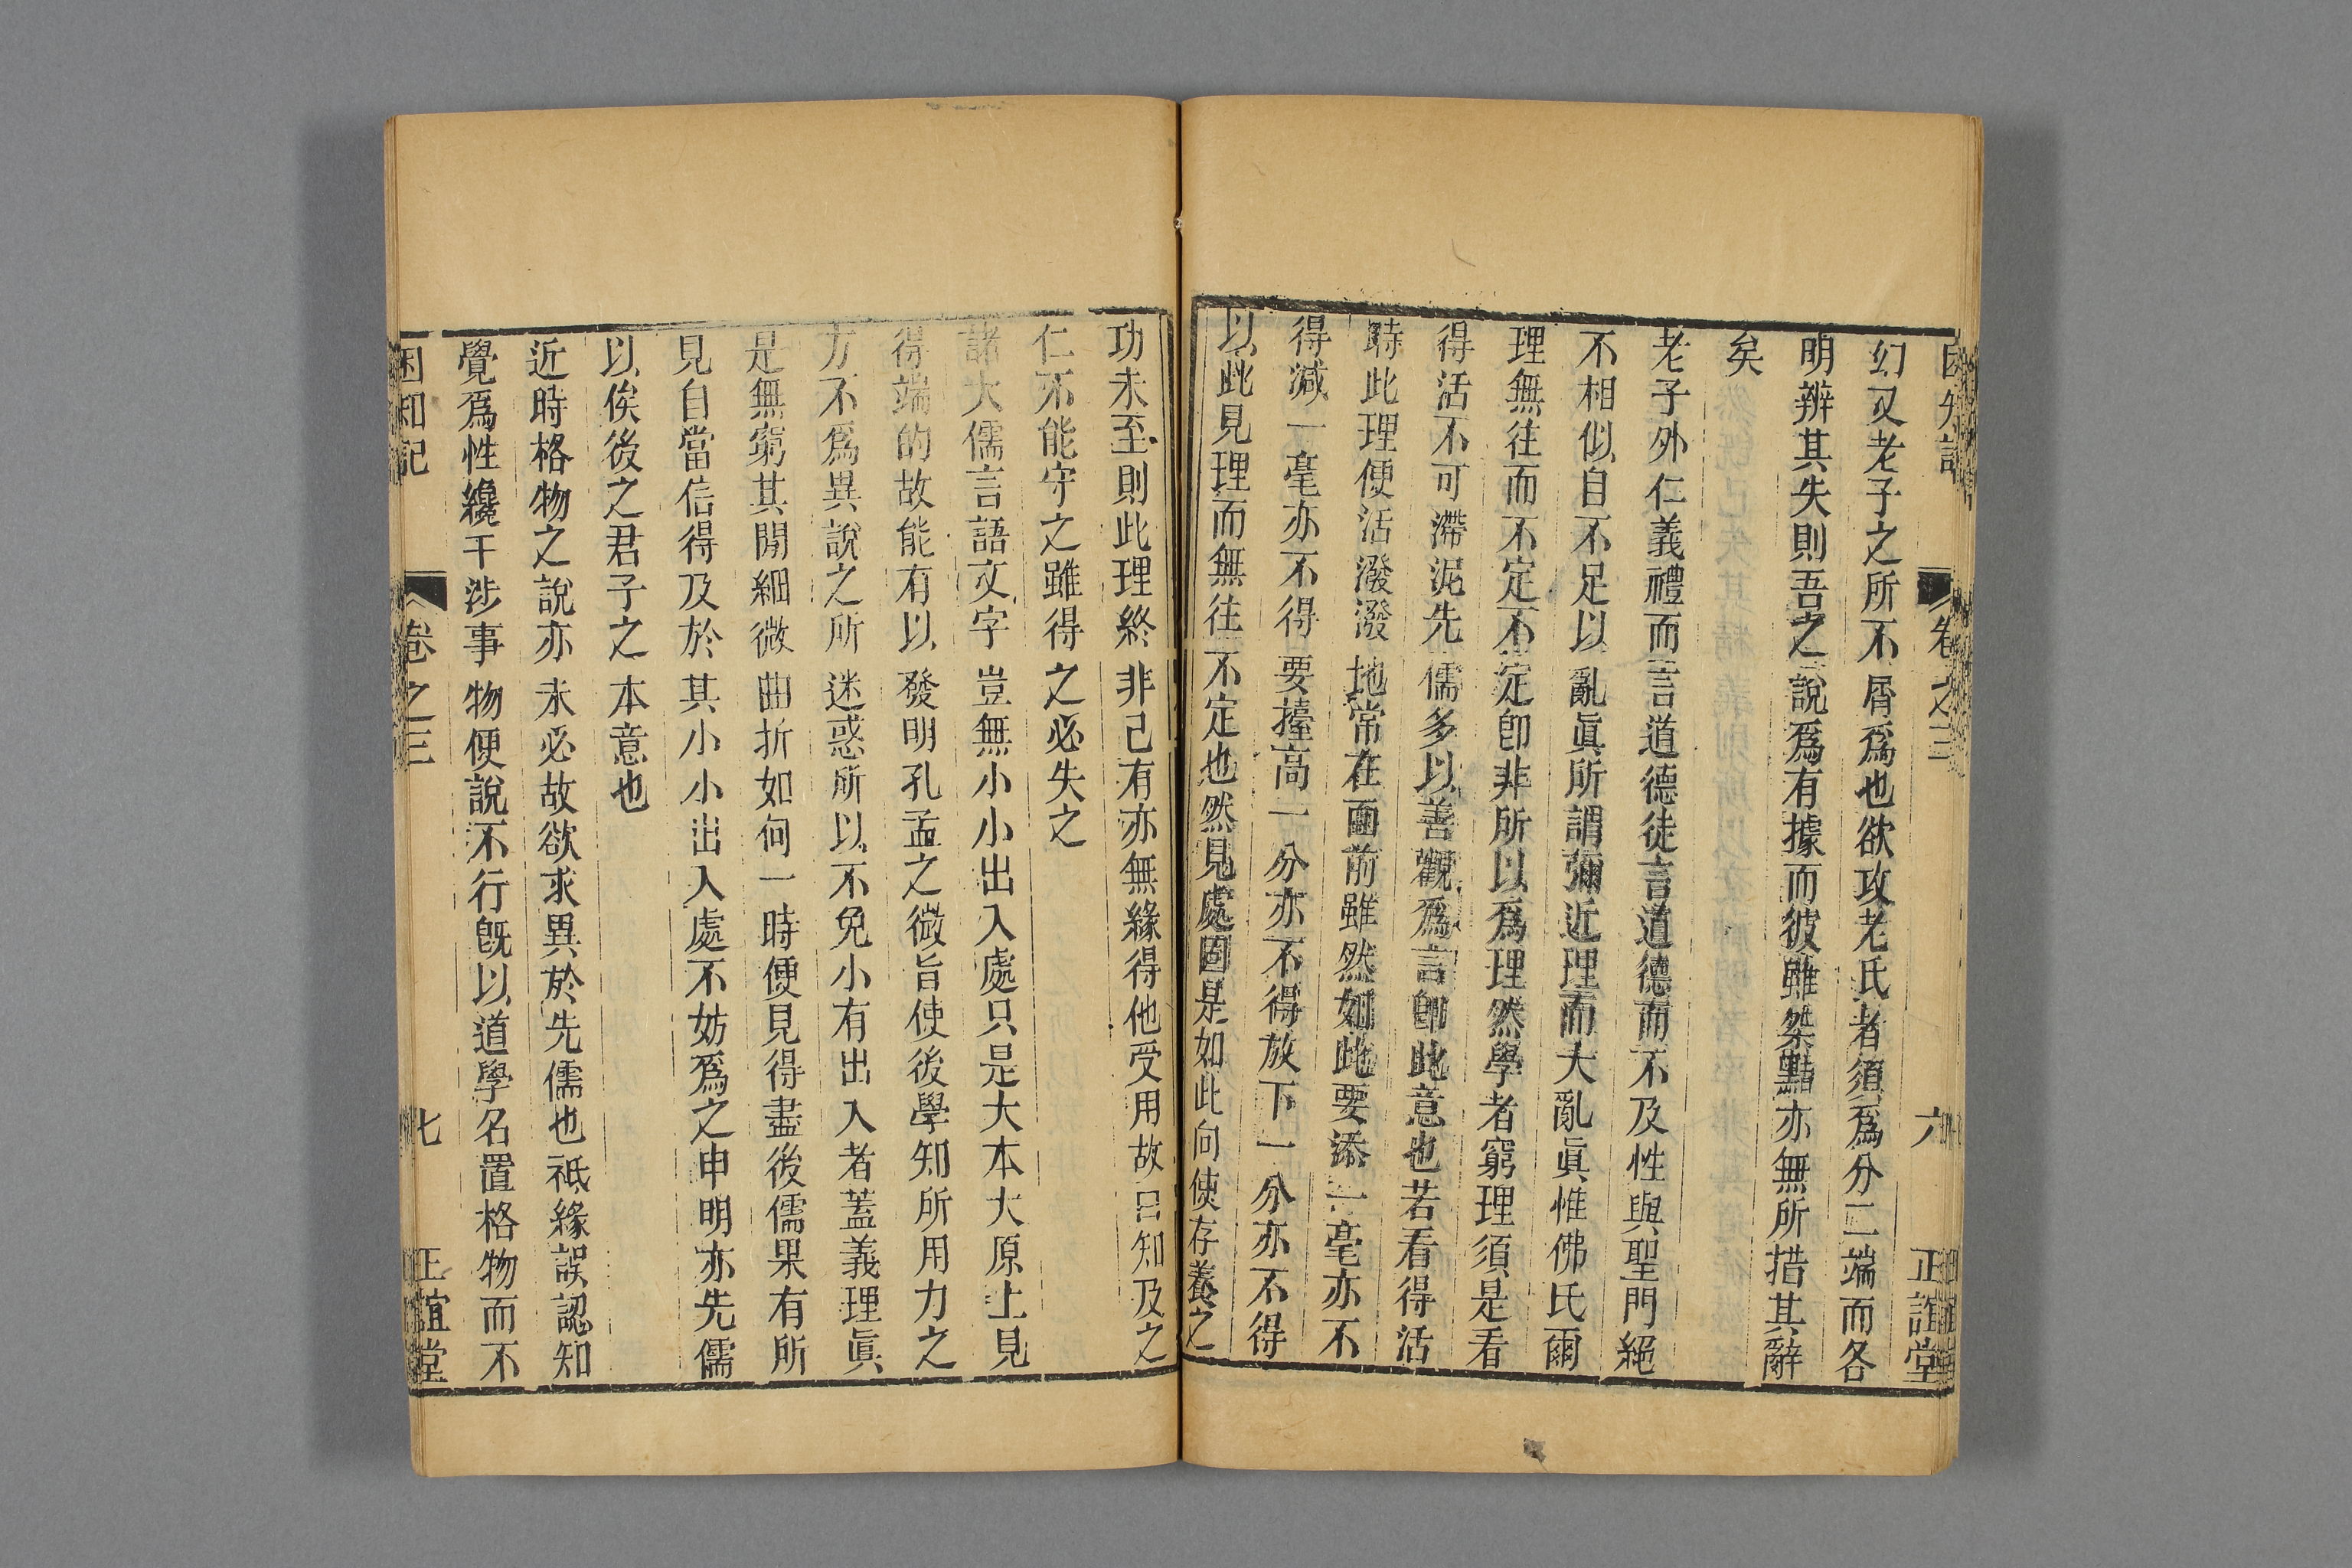 困知記 卷之三 六 正誼堂
幻又老子之所不屑爲也欲攻老氏者須爲分二端而各
明辨其失則吾之說爲有據而彼雖桀黠亦無所措其辭
矣
老子外仁義禮而言道德徒言道德而不及性與聖門絕
不相似自不足以亂眞所謂彌近理而大亂眞惟佛氏爾
理無往而不定不定卽非所以爲理然學者窮理須是看
得活不可滯泥先儒多以善觀爲言卽此意也若看得活
時此理便活潑潑地常在面前雖然如此要添一毫亦不
得減一毫亦不得要擡高一分亦不得放下一分亦不得
以此見理而無往不定也然見處固是如此向使存養之
功未至則此理終非己有亦無緣得他受用故曰知及之
仁不能守之雖得之必失之
諸大儒言語文字豈無小小出入處只是大本大原上見
得端的故能有以發明孔孟之微旨使後學知所用力之
方不爲異說之所迷惑所以不免小有出入者蓋義理眞
是無窮其閒細微曲折如何一時便見得盡後儒果有所
見自當信得及於其小小出入處不妨爲之申明亦先儒
以俟後之君子之本意也
近時格物之說亦未必故欲求異於先儒也祗緣誤認知
覺爲性纔干涉事物便說不行旣以道學名置格物而不
困知記 卷之三 七 正誼堂